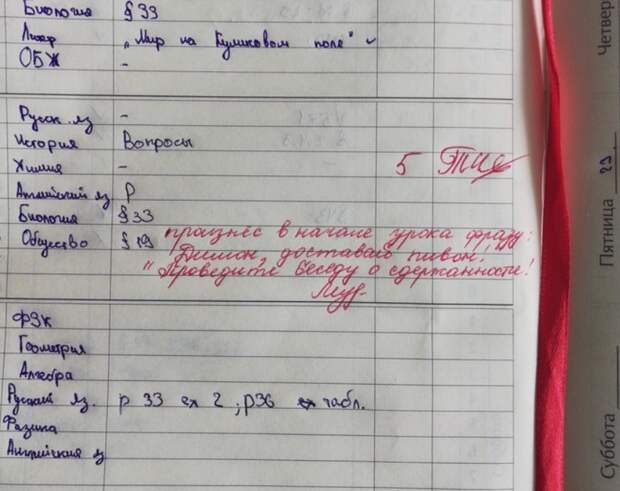 Биология § 33
Литер „Мир на Куликовом поле"
ОБЖ -
Четверг
Русск. яз -
История Вопросы
Химия - 5
Английский яз р
Биология § 33
Общество § 19 произнёс в начале урока фразу:
Димон, доставай пивон!
"Проведите беседу о сдержанности!
Пятница 29
ФЗК
Геометрия
Алгебра
Русский яз. р 33 2 ; р36 табл.
Физика
Английский яз
Суббота